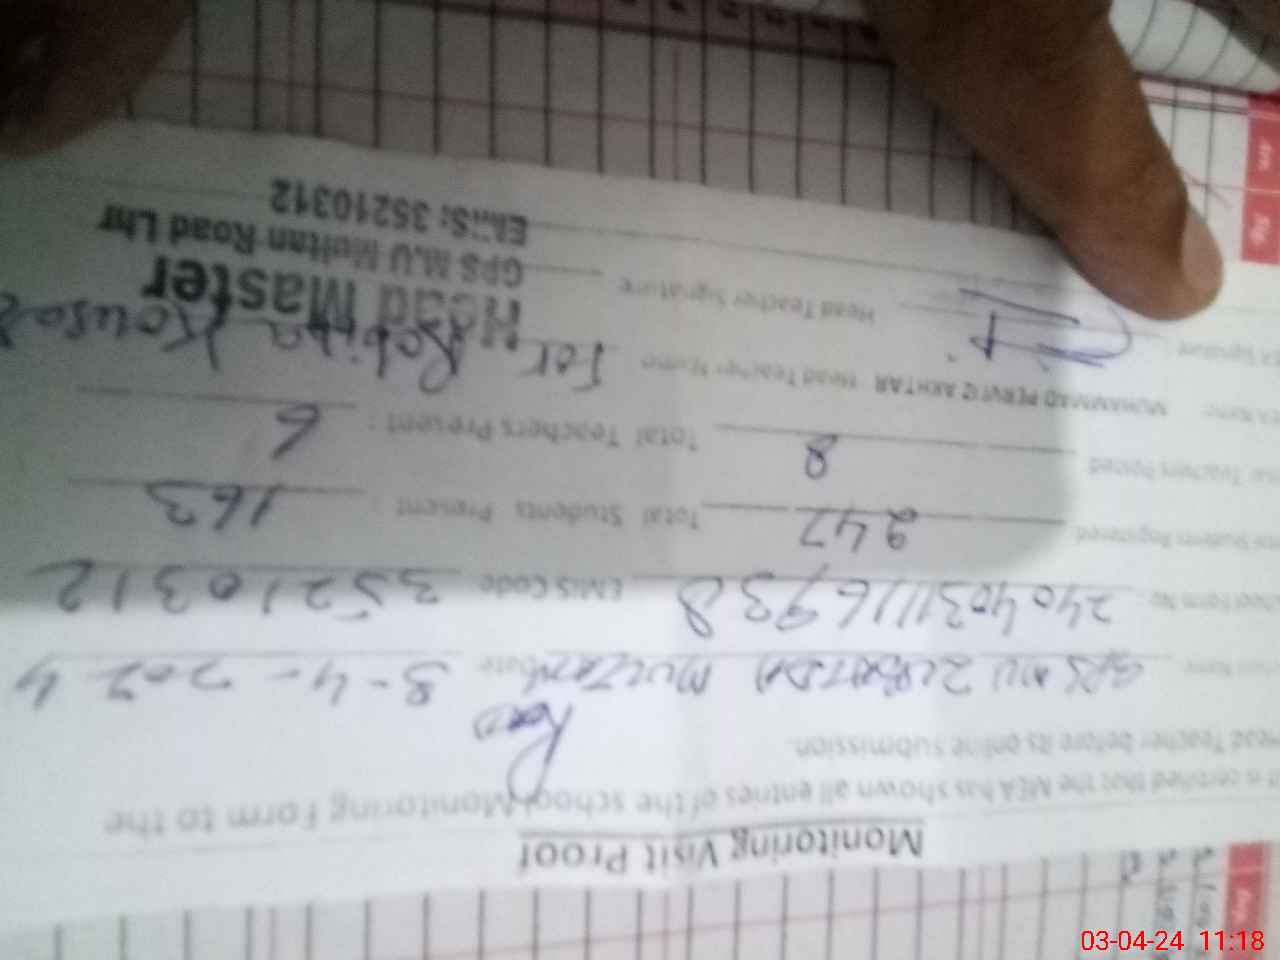 Monitoring Visit Proof
It is certified that the MEA has shown all entries of the school Monitoring Form to the
Head Teacher before its online submission.
Road
GPS MU MULTAN Date 3-4-2024
School Form No. EMIS Code 35210312
Students Registered 247 Total Students Present : 163
Teachers Posted 8 Total Teachers Present : 6
MEA Name MUHAMMAD PERVIZ AKHTAR Head Teacher Name For Robina Kousar
MEA Signature Head Teacher Signature
Head Master
GPS M.U Multan Road Lhr
EMIS: 35210312
03-04-24 11:18